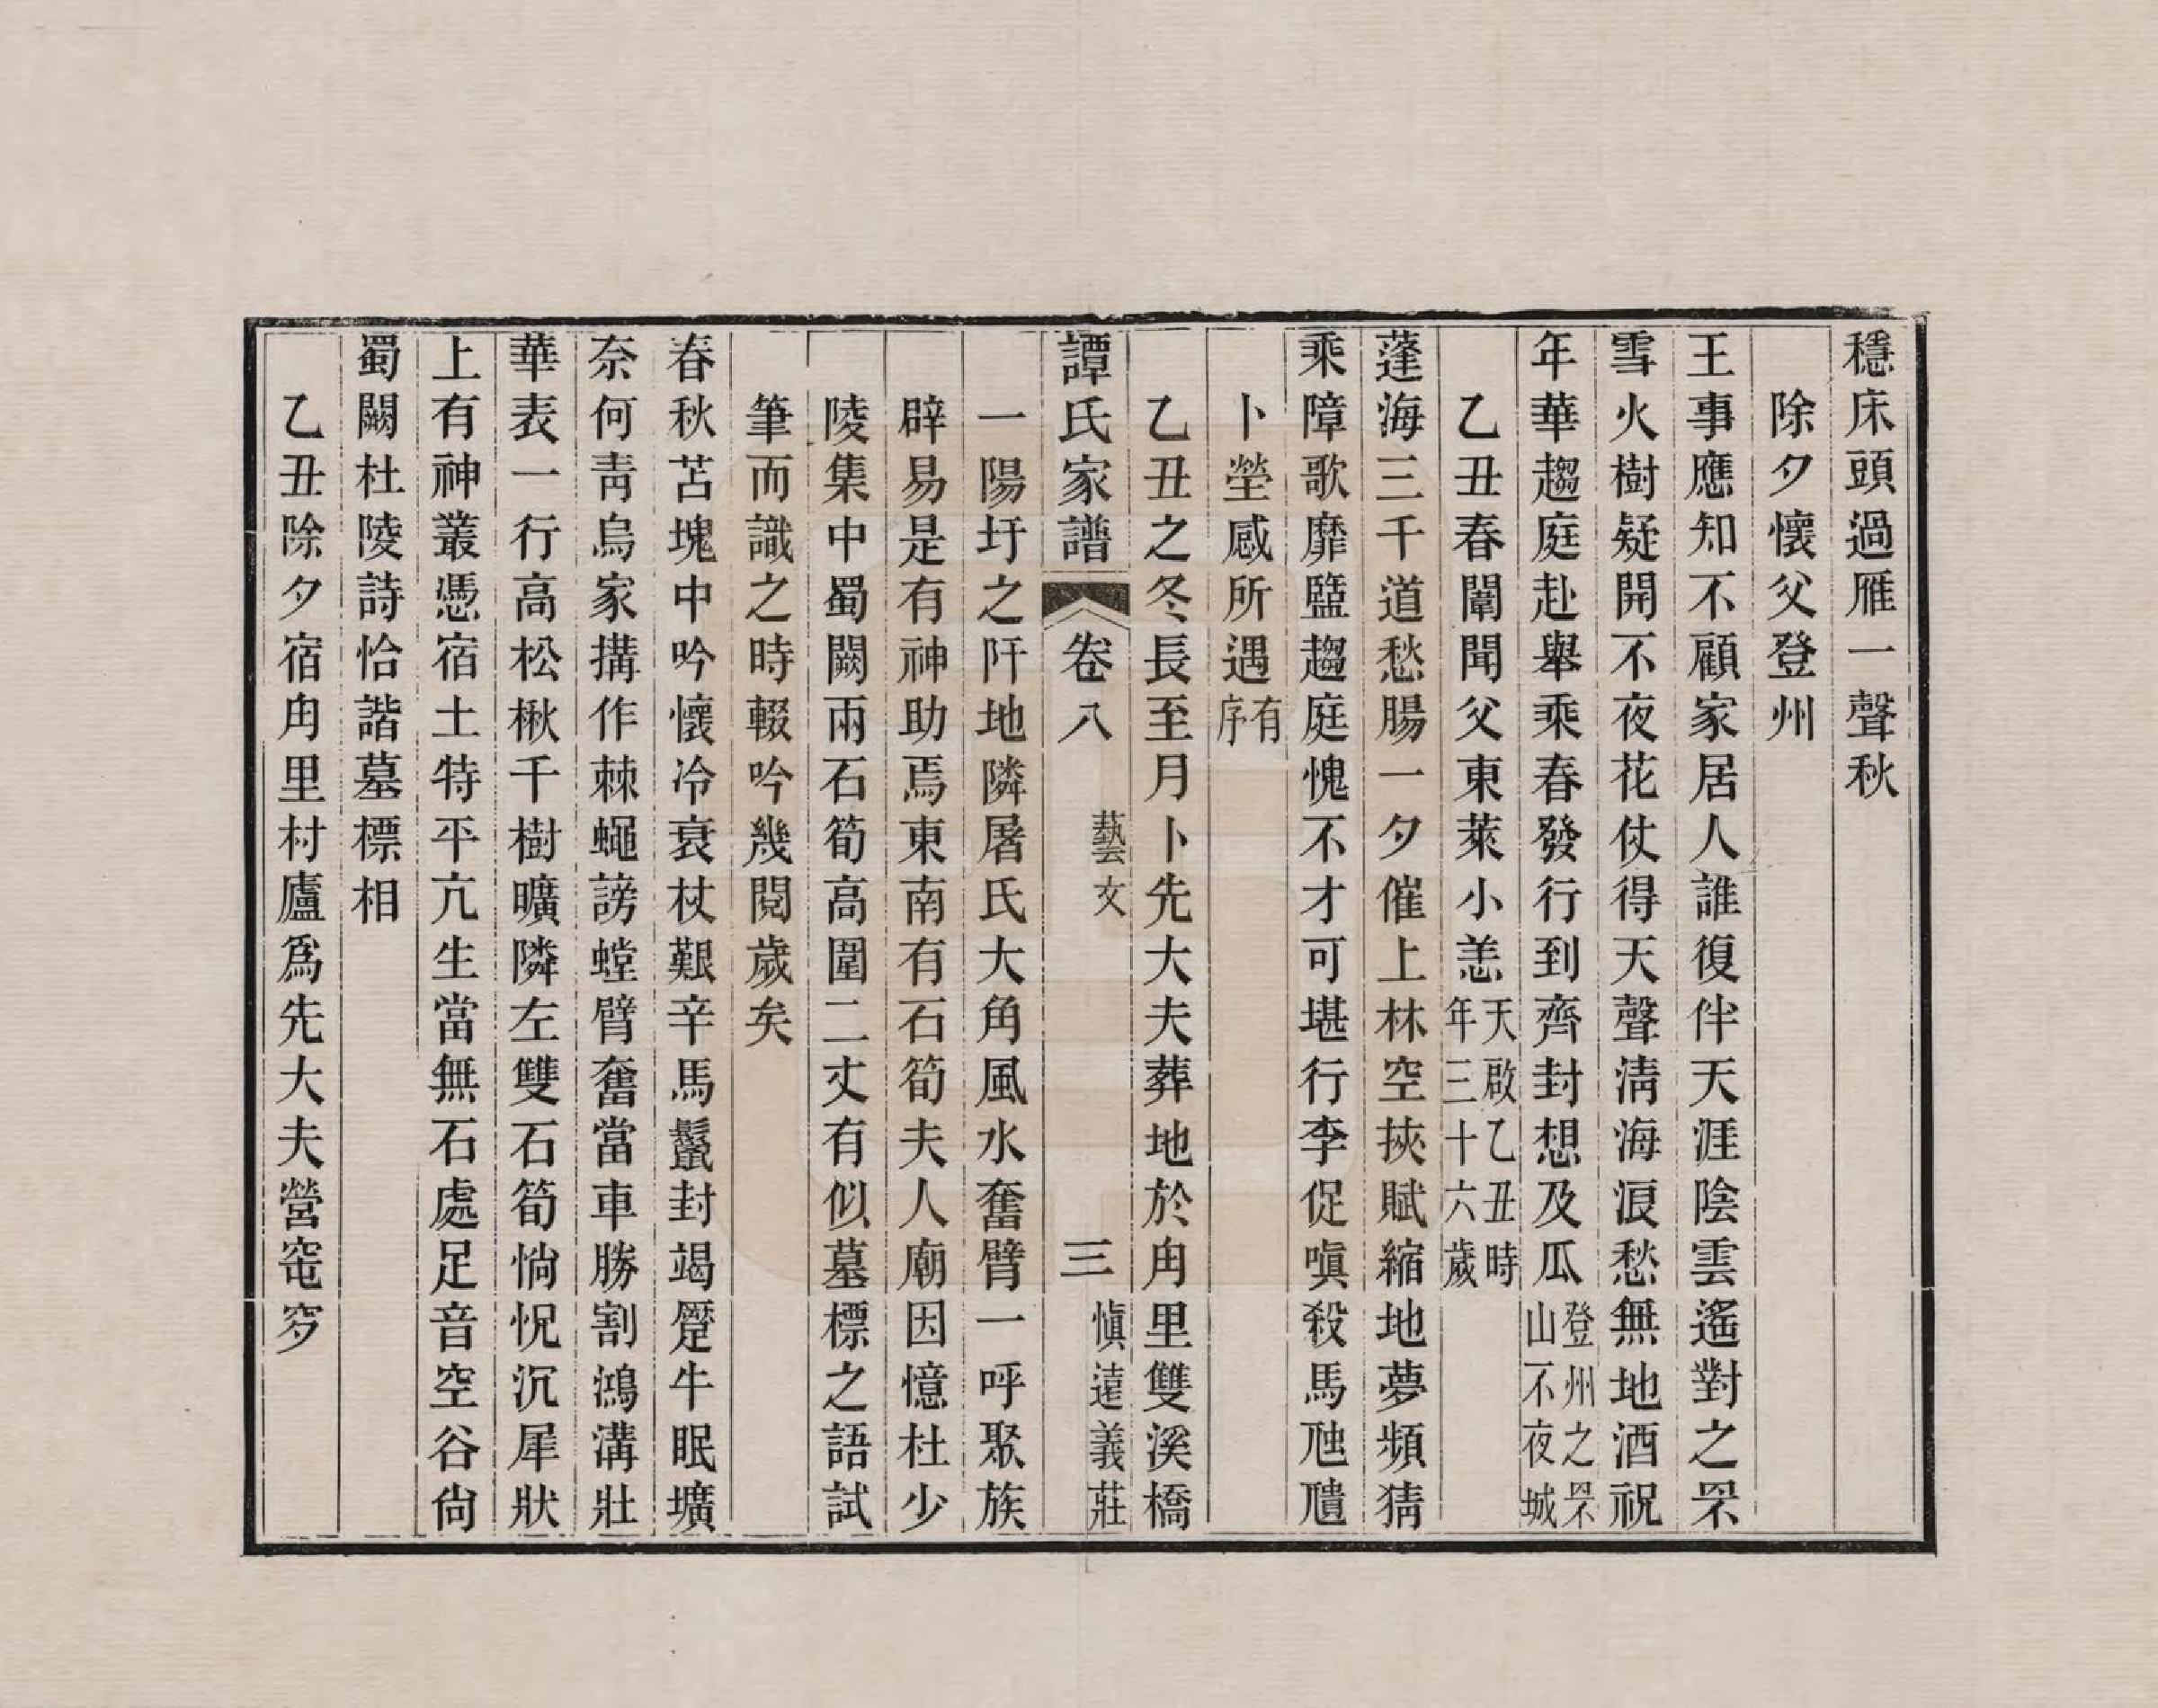 穩床頭過雁一聲秋
除夕懷父登州
王事應知不顧家居人誰復伴天涯陰雲遙對之罘
雪火樹疑開不夜花仗得天聲淸海浪愁無地酒祝
年華趨庭赴舉乘春發行到齊封想及瓜登州之罘山不夜城
乙丑春闈聞父東萊小恙天啟乙丑時年三十六歲
蓬海三千道愁腸一夕催上林空挾賦縮地夢頻猜
乘障歌靡盬趨庭愧不才可堪行李促嗔殺馬虺隤
卜塋感所遇有序
乙丑之冬長至月卜先大夫葬地於冉里雙溪橋
譚氏家譜 卷八 藝文 三 愼遠義莊
一陽圩之阡地隣屠氏大角風水奮臂一呼聚族
辟易是有神助焉東南有石筍夫人廟因憶杜少
陵集中蜀闕兩石筍高圍二丈有似墓標之語試
筆而識之時輟吟幾閱歲矣
春秋苫塊中吟懷冷衰杖艱辛馬鬣封竭蹷牛眠壙
奈何靑烏家搆作棘蠅謗螳臂奮當車勝割鴻溝壯
華表一行高松楸千樹曠隣左雙石筍惝怳沉犀狀
上有神叢憑宿土特平亢生當無石處足音空谷尙
蜀闕杜陵詩恰諧墓標相
乙丑除夕宿冉里村廬爲先大夫營窀穸